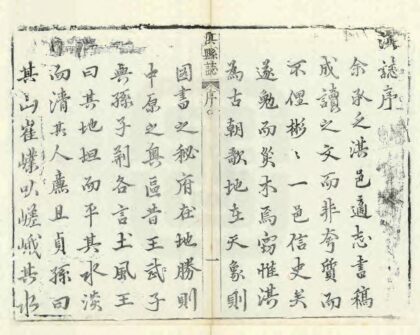 淇誌序
余承乏淇邑適志書稿
成讀之文而非夸質而
不俚彬〻一邑信史矣
遂勉而災木焉竊惟淇
為古朝歌地在天象則
淇縣誌 序 一
圖書之秘府在地勝則
中原之奧區昔王武子
與孫子荊各言土風王
曰其地坦而平其水淡
而清其人廉且貞孫曰
其山崔以嵯峨其水